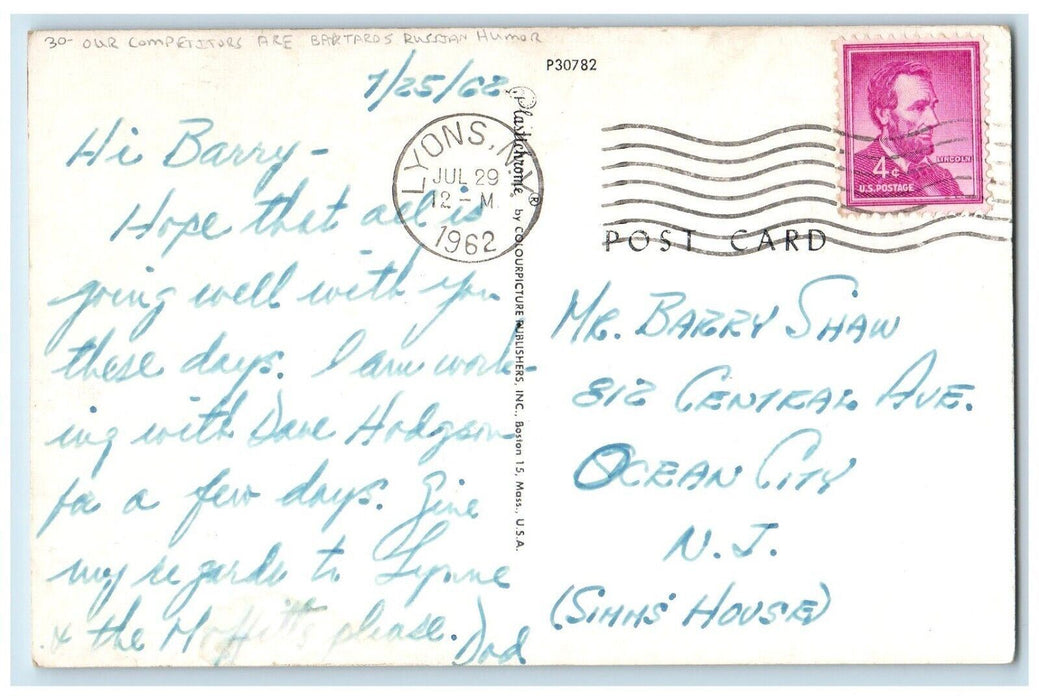 30- OUR COMPETITORS ARE BARTARDS RUSSIAN HUMOR
P30782
7/25/62
Hi Barry –
Hope that all is
going well with you
these days. I am work-
ing with Dave Hodgson
for a few days. Give
my regards to Lynne
& the Moffitts please.
Dad
LYONS, N.Y.
JUL 29
12 - M
1962
Plastichrome® by COLOURPICTURE PUBLISHERS, INC., Boston 15, Mass., U.S.A.
LINCOLN
4¢
U.S. POSTAGE
POST CARD
MR. BARRY SHAW
812 CENTRAL AVE.
OCEAN CITY
N.J.
(SIMMS' HOUSE)